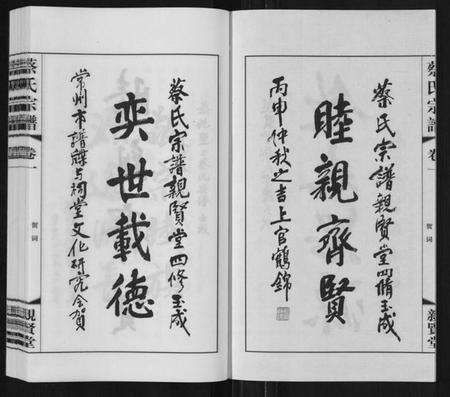 蔡氏宗譜
卷一
賀詞
親賢堂
蔡氏宗譜親賢堂四修玉成
睦親齊賢
丙申仲秋之吉上官鶴錦
蔡氏宗譜親賢堂四修玉成
奕世載德
常州市譜牒与祠堂文化研究会賀
蔡氏宗譜
卷一
賀詞
親賢堂